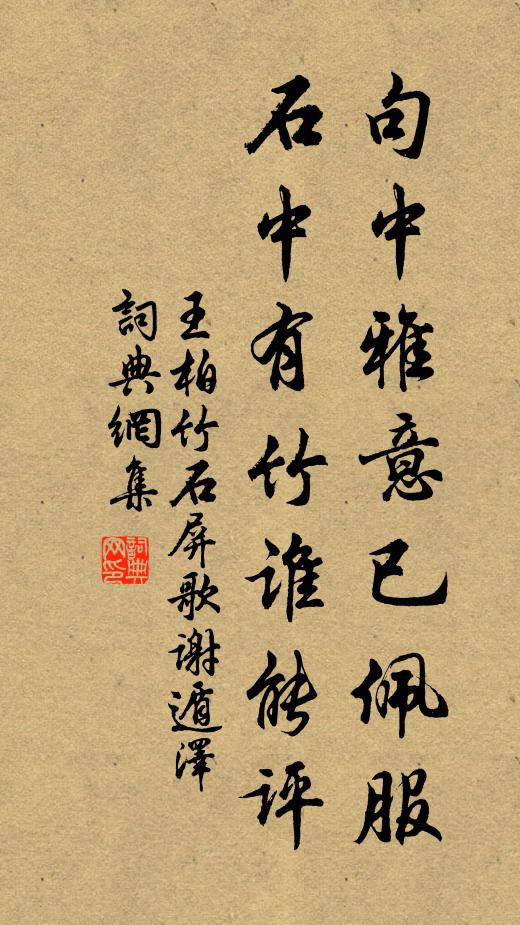 句中雅意已佩服
石中有竹谁能评
王柏竹石屏歌谢遁泽
詞典網集
詞典网印